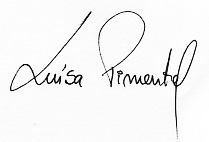 Luisa Pimentel